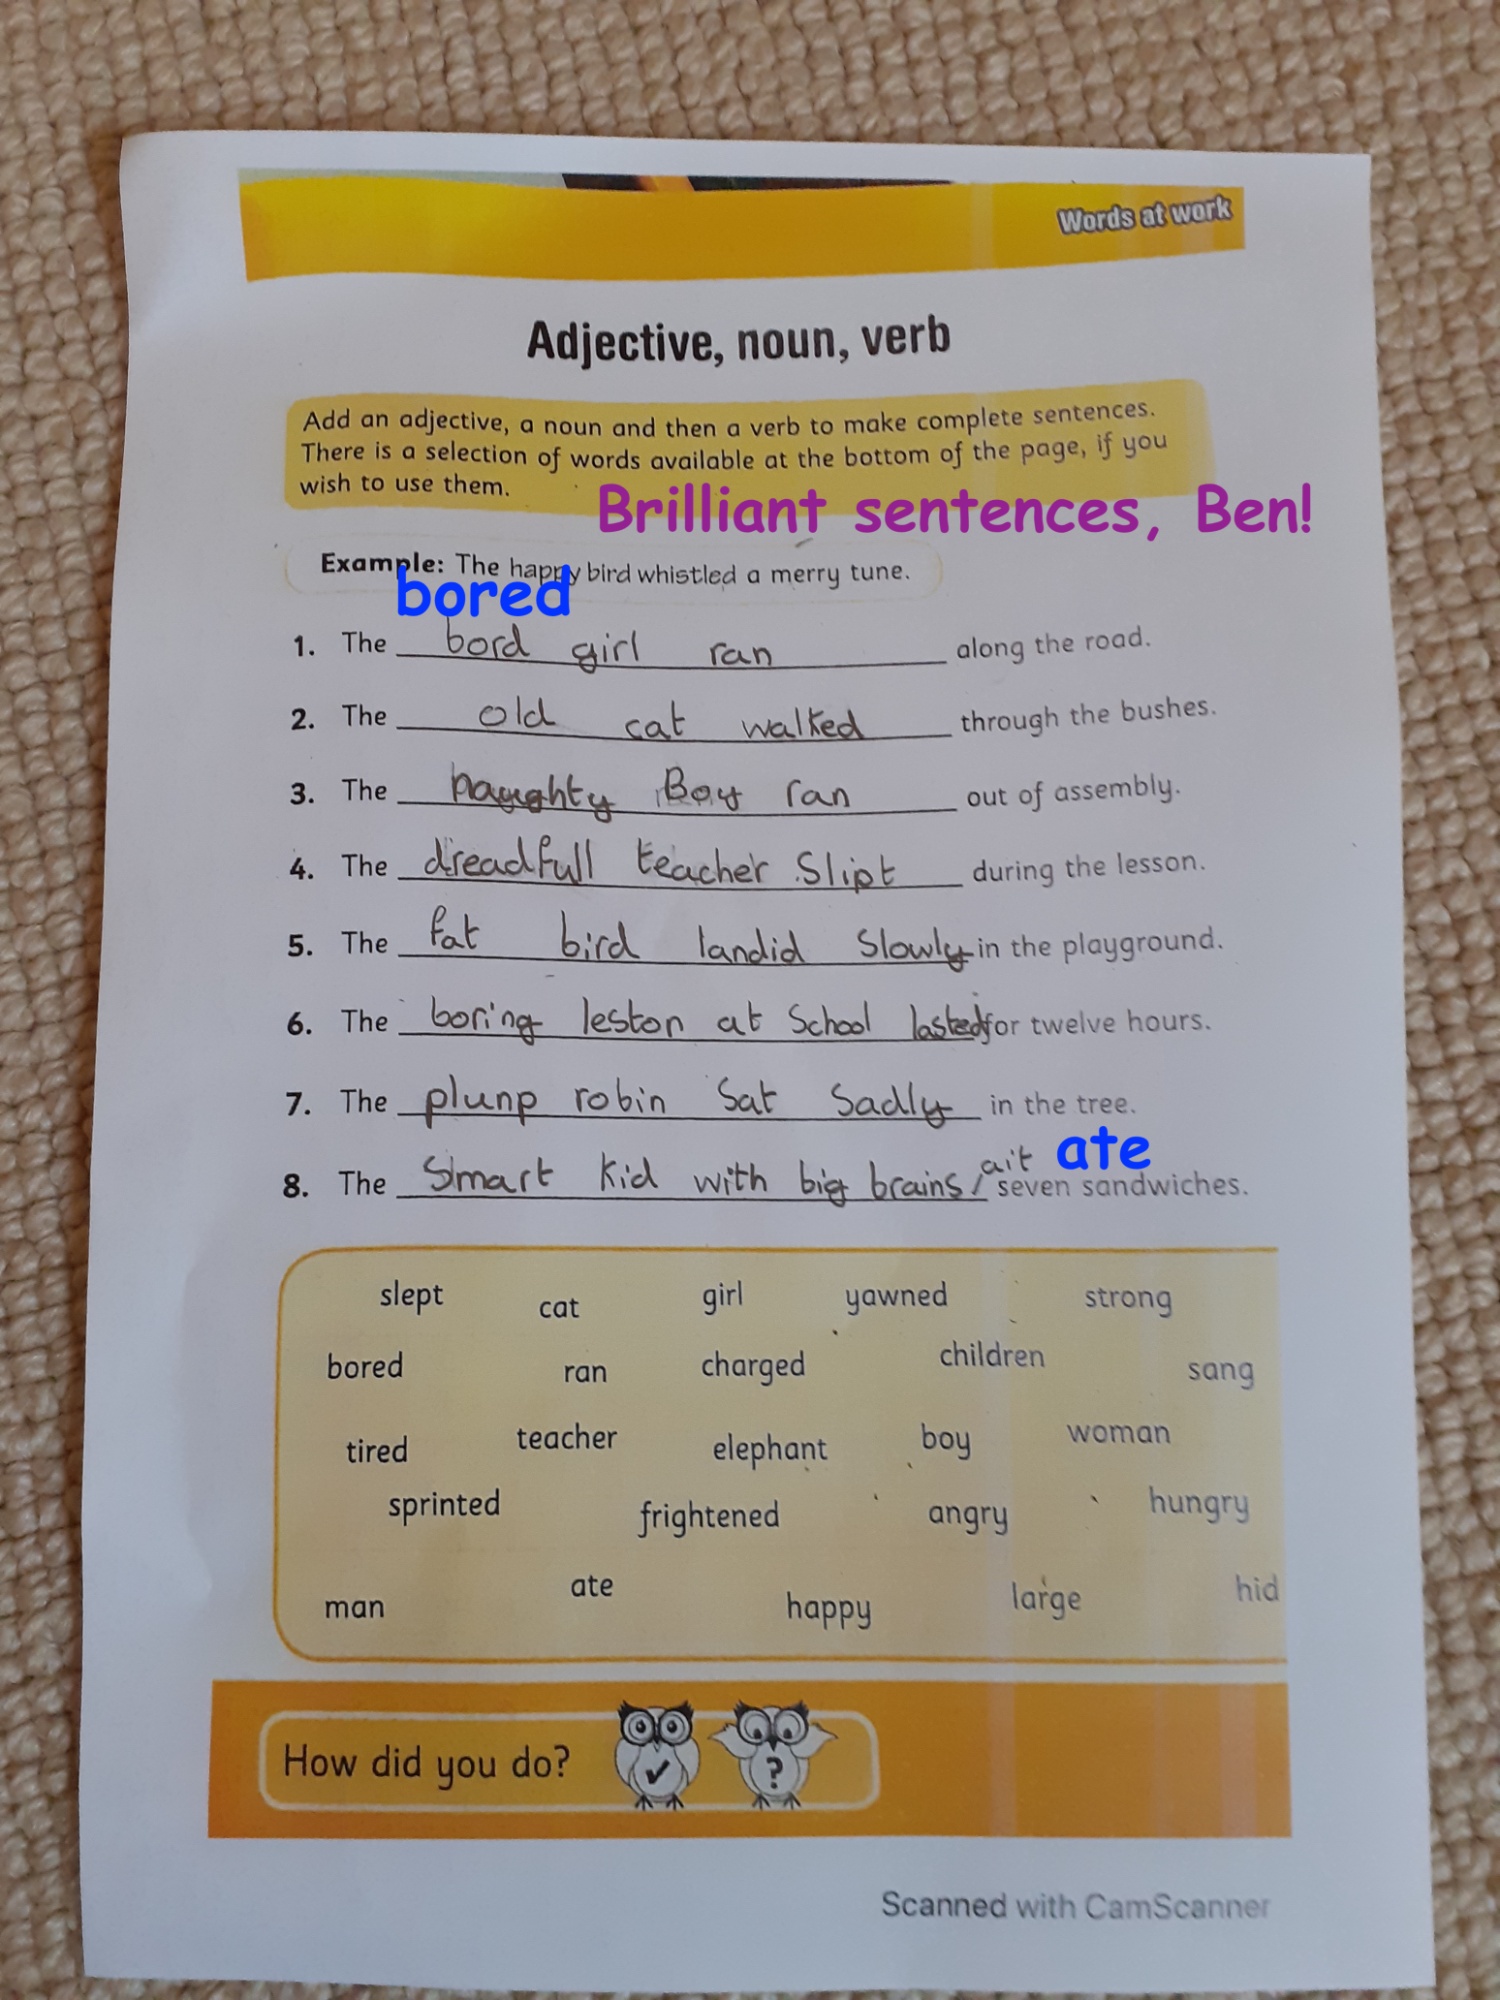 Words at work
Adjective, noun, verb
Add an adjective, a noun and then a verb to make complete sentences.
There is a selection of words available at the bottom of the page, if you
wish to use them.
Brilliant sentences, Ben!
Example: The happy bird whistled a merry tune.
bored
1. The bord girl ran along the road.
2. The old cat walked through the bushes.
3. The naughty Boy ran out of assembly.
4. The dreadfull teacher Slipt during the lesson.
5. The fat bird landid Slowly in the playground.
6. The boring leston at School lasted for twelve hours.
7. The plunp robin Sat Sadly in the tree.
ait ate
8. The Smart Kid with big brains / seven sandwiches.
slept cat girl yawned strong
bored ran charged children sang
tired teacher elephant boy woman
sprinted frightened angry hungry
man ate happy large hid
How did you do? ?
Scanned with CamScanner